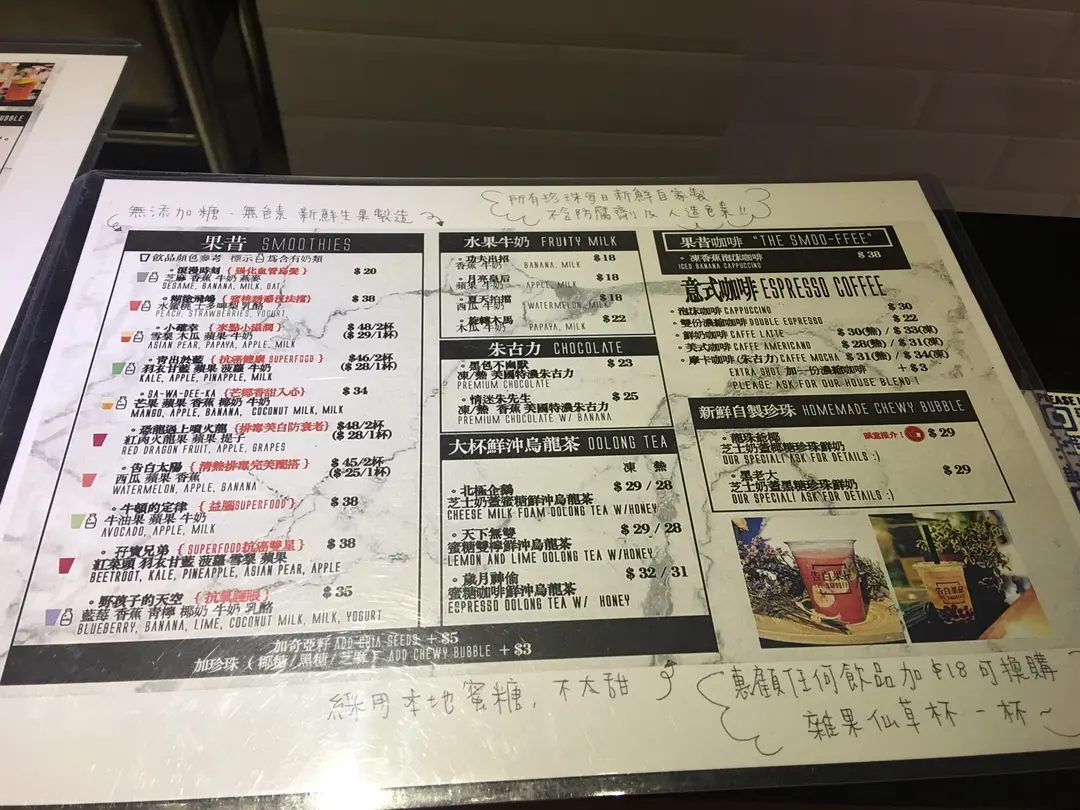 無添加糖、無色素 新鮮生果製造
所有珍珠每日新鮮自家製
不含防腐劑及人造色素!!
果昔 SMOOTHIES
飲品顏色參考 標示 為含有奶類
浪漫時刻 {強化血管扁髮} $20
芝麻 香蕉 牛奶 燕麥
SESAME, BANANA, MILK, OAT
糊塗飛鴿 $38
水蜜桃 士多啤梨 乳酪
PEACH, STRAWBERRIES, YOGURT
小確幸 {來點小滋潤} $48/2杯
雪梨 木瓜 蘋果 牛奶 ($29/1杯)
ASIAN PEAR, PAPAYA, APPLE, MILK
青出於藍 {抗癌健康 SUPERFOOD} $46/2杯
羽衣甘藍 蘋果 菠蘿 牛奶 ($28/1杯)
KALE, APPLE, PINAPPLE, MILK
SA-WA-DEE-KA {芒椰香甜入心} $34
芒果 蘋果 香蕉 椰奶 牛奶
MANGO, APPLE, BANANA, COCONUT MILK, MILK
恐龍遇上噴火龍 {排毒美白防衰老} $48/2杯
紅肉火龍果 蘋果 提子 ($28/1杯)
RED DRAGON FRUIT, APPLE, GRAPES
告白太陽 {清熱排毒完美配搭} $45/2杯
西瓜 蘋果 香蕉 ($25/1杯)
WATERMELON, APPLE, BANANA
牛頓的定律 {益腦SUPERFOOD} $38
牛油果 蘋果 牛奶
AVOCADO, APPLE, MILK
孖寶兄弟 {SUPERFOOD抗癌雙星} $38
紅菜頭 羽衣甘藍 菠蘿 雪梨 蘋果
BEETROOT, KALE, PINEAPPLE, ASIAN PEAR, APPLE
野孩子的天空 {抗氧護眼} $35
藍莓 香蕉 青檸 椰奶 牛奶 乳酪
BLUEBERRY, BANANA, LIME, COCONUT MILK, MILK, YOGURT
加奇亞籽 ADD CHIA SEEDS +$5
加珍珠 (椰糖/黑糖/芝麻) ADD CHEWY BUBBLE +$3
水果牛奶 FRUITY MILK
功夫出招 $18
香蕉 牛奶 BANANA, MILK
月亮皇后 $18
蘋果 牛奶 APPLE, MILK
夏天拍擋 $18
西瓜 牛奶 WATERMELON, MILK
旋轉木馬 $22
木瓜 牛奶 PAPAYA, MILK
朱古力 CHOCOLATE
黑色不幽默 $23
凍/熱 美國特濃朱古力
PREMIUM CHOCOLATE
情迷朱先生 $25
凍/熱 香蕉 美國特濃朱古力
PREMIUM CHOCOLATE W/ BANANA
大杯鮮沖烏龍茶 OOLONG TEA
凍 熱
北極企鵝 $29 / 28
芝士奶蓋蜜糖鮮沖烏龍茶
CHEESE MILK FOAM OOLONG TEA W/HONEY
天下無雙 $29 / 28
蜜糖雙檸鮮沖烏龍茶
LEMON AND LIME OOLONG TEA W/HONEY
歲月神偷 $32 / 31
蜜糖咖啡鮮沖烏龍茶
ESPRESSO OOLONG TEA W/ HONEY
果昔咖啡 "THE SMOO-FFEE"
凍香蕉泡沫咖啡 $38
ICED BANANA CAPPUCCINO
意式咖啡 ESPRESSO COFFEE
泡沫咖啡 CAPPUCCINO $30
雙份濃縮咖啡 DOUBLE ESPRESSO $22
鮮奶咖啡 CAFFE LATTE $30(熱) / $33(凍)
美式咖啡 CAFFE AMERICANO $28(熱) / $31(凍)
摩卡咖啡(朱古力) CAFFE MOCHA $31(熱) / $34(凍)
EXTRA SHOT 加一份濃縮咖啡 +$3
PLEASE ASK FOR OUR HOUSE BLEND !
新鮮自製珍珠 HOMEMADE CHEWY BUBBLE
龍珠爺椰 $29
芝士奶蓋椰糖珍珠鮮奶
OUR SPECIAL! ASK FOR DETAILS :)
黑老大 $29
芝士奶蓋黑糖珍珠鮮奶
OUR SPECIAL! ASK FOR DETAILS :)
告白果昔
告白果昔
採用本地蜜糖，不太甜
惠顧任何飲品加$18可換購
雜果仙草杯一杯~